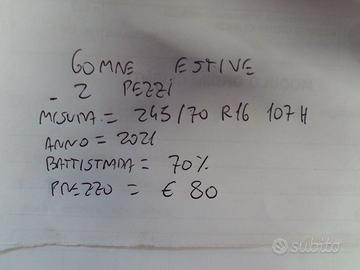 GOMME ESTIVE
- 2 PEZZI
MISURA = 245/70 R16 107 H
ANNO = 2021
BATTISTRADA = 70%
PREZZO = € 80
subito